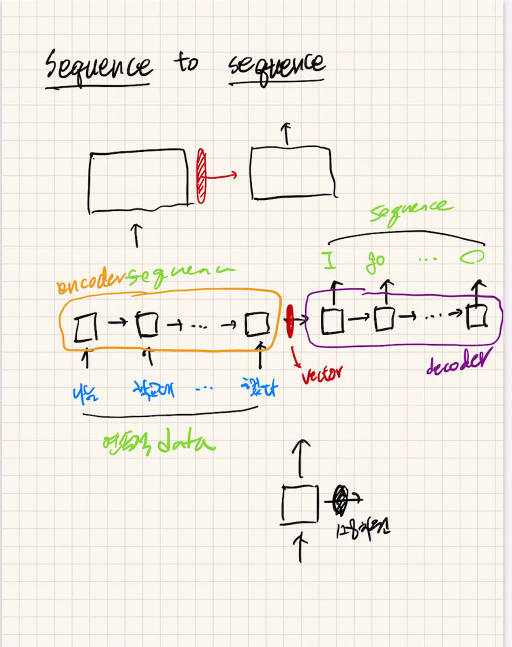 Sequence to sequence
sequence
I go ... O
encoder sequence
...
...
vector
decoder
나는 학교에 ... 갔다
data
128차원